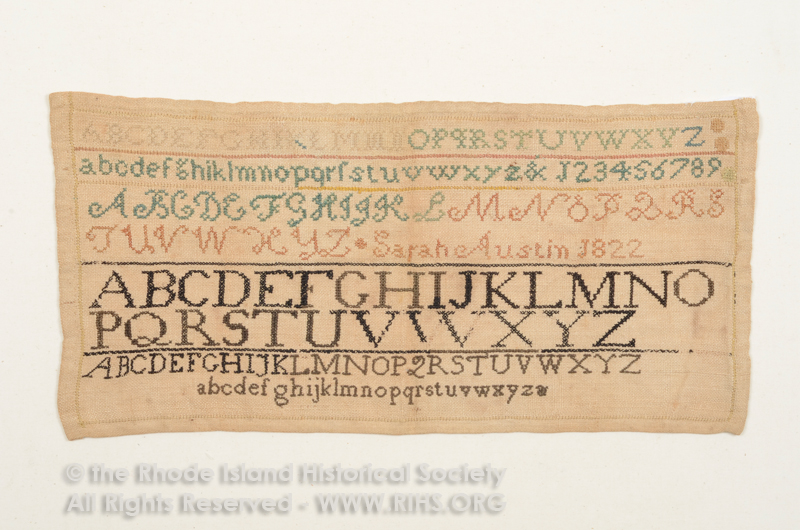 ABCDEFGHIKLMNOPQRSTUVWXYZ
abcdefghiklmnopqrſstuvwxyz& 123456789
ABCDEFGHIJKLMNOPQRS
TUVWXYZ•Sarah Austin 1822
ABCDEFGHIJKLMNO
PQRSTUVWXYZ
ABCDEFGHIJKLMNOPQRSTUVWXYZ
abcdefghijklmnopqrstuvwxyz&
© the Rhode Island Historical Society
All Rights Reserved - WWW.RIHS.ORG